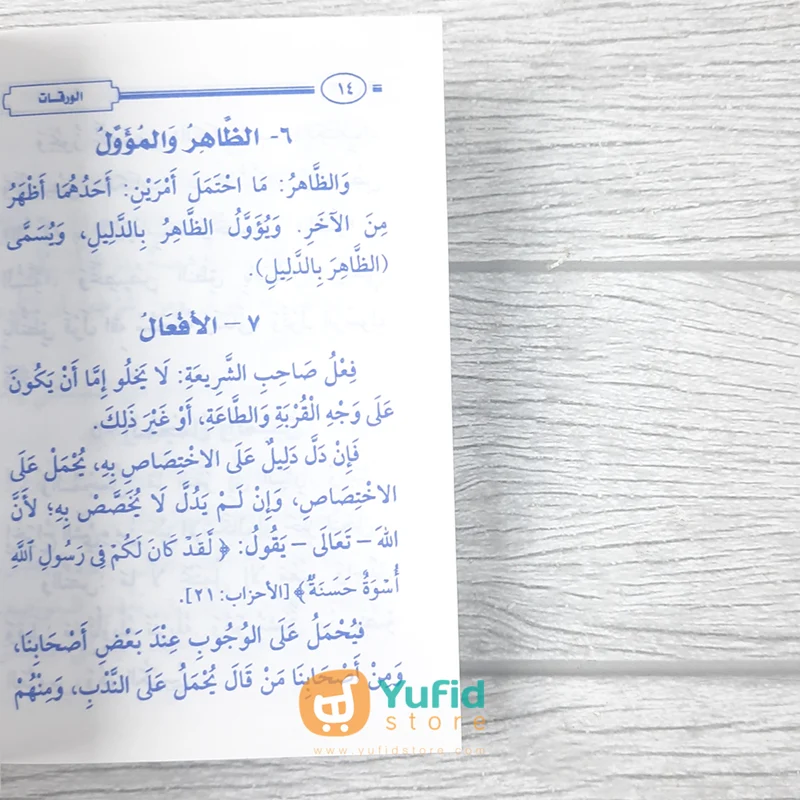 ١٤
الورقات
٦- الظَّاهِرُ وَالمُؤَوَّلُ
وَالظَّاهِرُ: مَا احْتَمَلَ أَمْرَيْنِ: أَحَدُهُمَا أَظْهَرُ
مِنَ الآخَرِ. وَيُؤَوَّلُ الظَّاهِرُ بِالدَّلِيلِ، وَيُسَمَّى
(الظَّاهِرَ بِالدَّلِيلِ).
٧ – الأَفْعَالُ
فِعْلُ صَاحِبِ الشَّرِيعَةِ: لَا يَخْلُو إِمَّا أَنْ يَكُونَ
عَلَى وَجْهِ الْقُرْبَةِ وَالطَّاعَةِ، أَوْ غَيْرَ ذَلِكَ.
فَإِنْ دَلَّ دَلِيلٌ عَلَى الاخْتِصَاصِ بِهِ، يُحْمَلْ عَلَى
الاخْتِصَاصِ، وَإِنْ لَـمْ يَدُلَّ لَا يُخَصَّصْ بِهِ؛ لأَنَّ
اللهَ – تَعَالَى – يَقُولُ: ﴿ لَّقَدْ كَانَ لَكُمْ فِى رَسُولِ ٱللَّهِ
أُسْوَةٌ حَسَنَةٌ﴾ [الأحزاب: ٢١].
فيُحْمَلُ عَلَى الوُجُوبِ عِنْدَ بَعْضِ أَصْحَابِنَا،
وَمِنْ أَصْحَابِنَا مَنْ قَالَ يُحْمَلُ عَلَى النَّدْبِ، وَمِنْهُمْ
Yufid
store
www.yufidstore.com